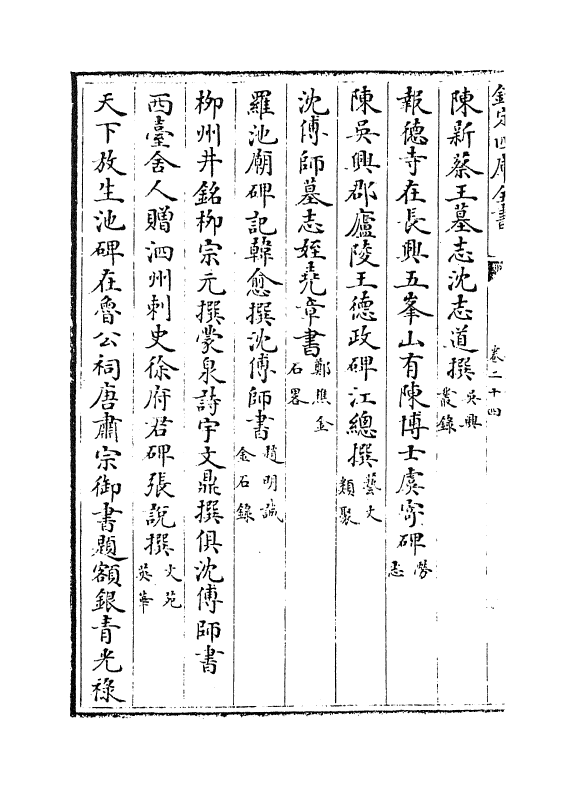 欽定四庫全書
卷二十四
陳新蔡王墓志沈志道撰吳興叢錄
報德寺在長興五峯山有陳博士虞寄碑勞志
陳吳興郡廬陵王德政碑江總撰藝文類聚
沈傅師墓志姪堯章書鄭樵金石畧
羅池廟碑記韓愈撰沈傅師書趙明誠金石錄
柳州井銘柳宗元撰蒙泉詩宇文鼎撰俱沈傅師書
西臺舍人贈泗州刺史徐府君碑張說撰文苑英華
天下放生池碑在魯公祠唐肅宗御書題額銀青光祿